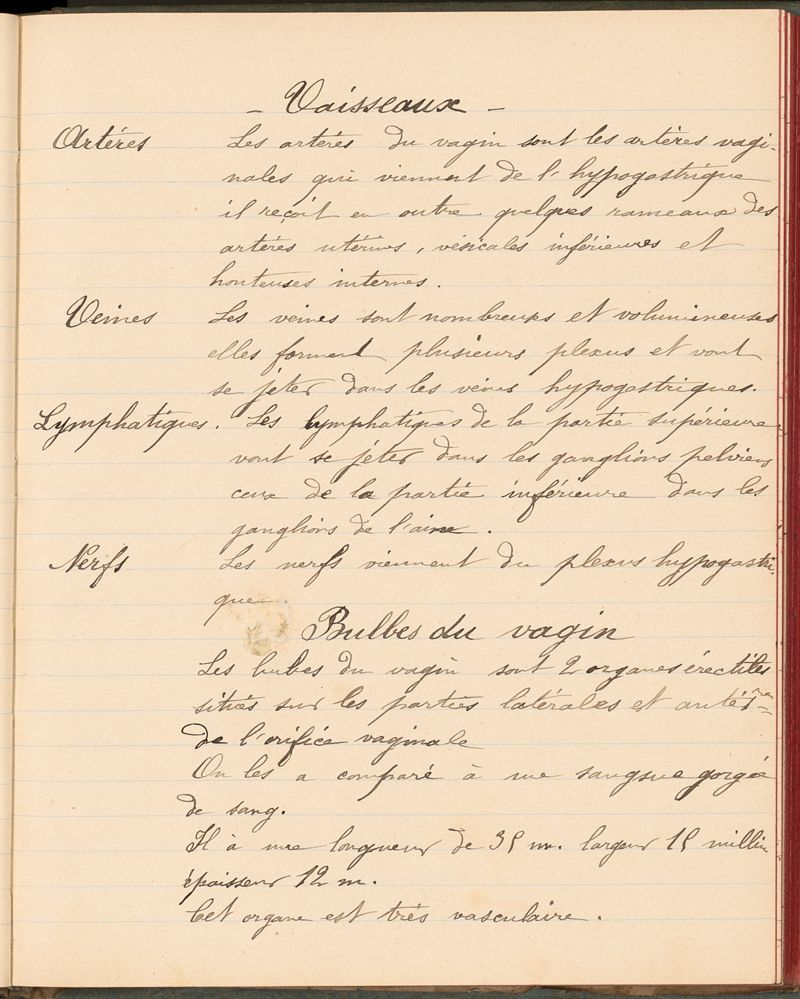 - Vaisseaux -
Artères Les artères du vagin sont les artères vagi-
nales qui viennent de l'hypogastrique
il reçoit en outre quelques rameaux des
artères utérines, vésicales inférieures et
honteuses internes.
Veines Les veines sont nombreuses et volumineuses
elles forment plusieurs plexus et vont
se jeter dans les veines hypogastriques.
Lymphatiques. Les lymphatiques de la partie supérieure
vont se jeter dans les ganglions pelviens
ceux de la partie inférieure dans les
ganglions de l'aine.
Nerfs Les nerfs viennent du plexus hypogastri-
que
Bulbes du vagin
Les bubes du vagin sont 2 organes érectiles
situés sur les parties latérales et antér
de l'orifice vaginale
On les a comparé à une sangsue gorgée
de sang.
Il à une longueur de 35 m. largeur 15 millim
épaisseur 12 m.
Cet organe est très vasculaire.